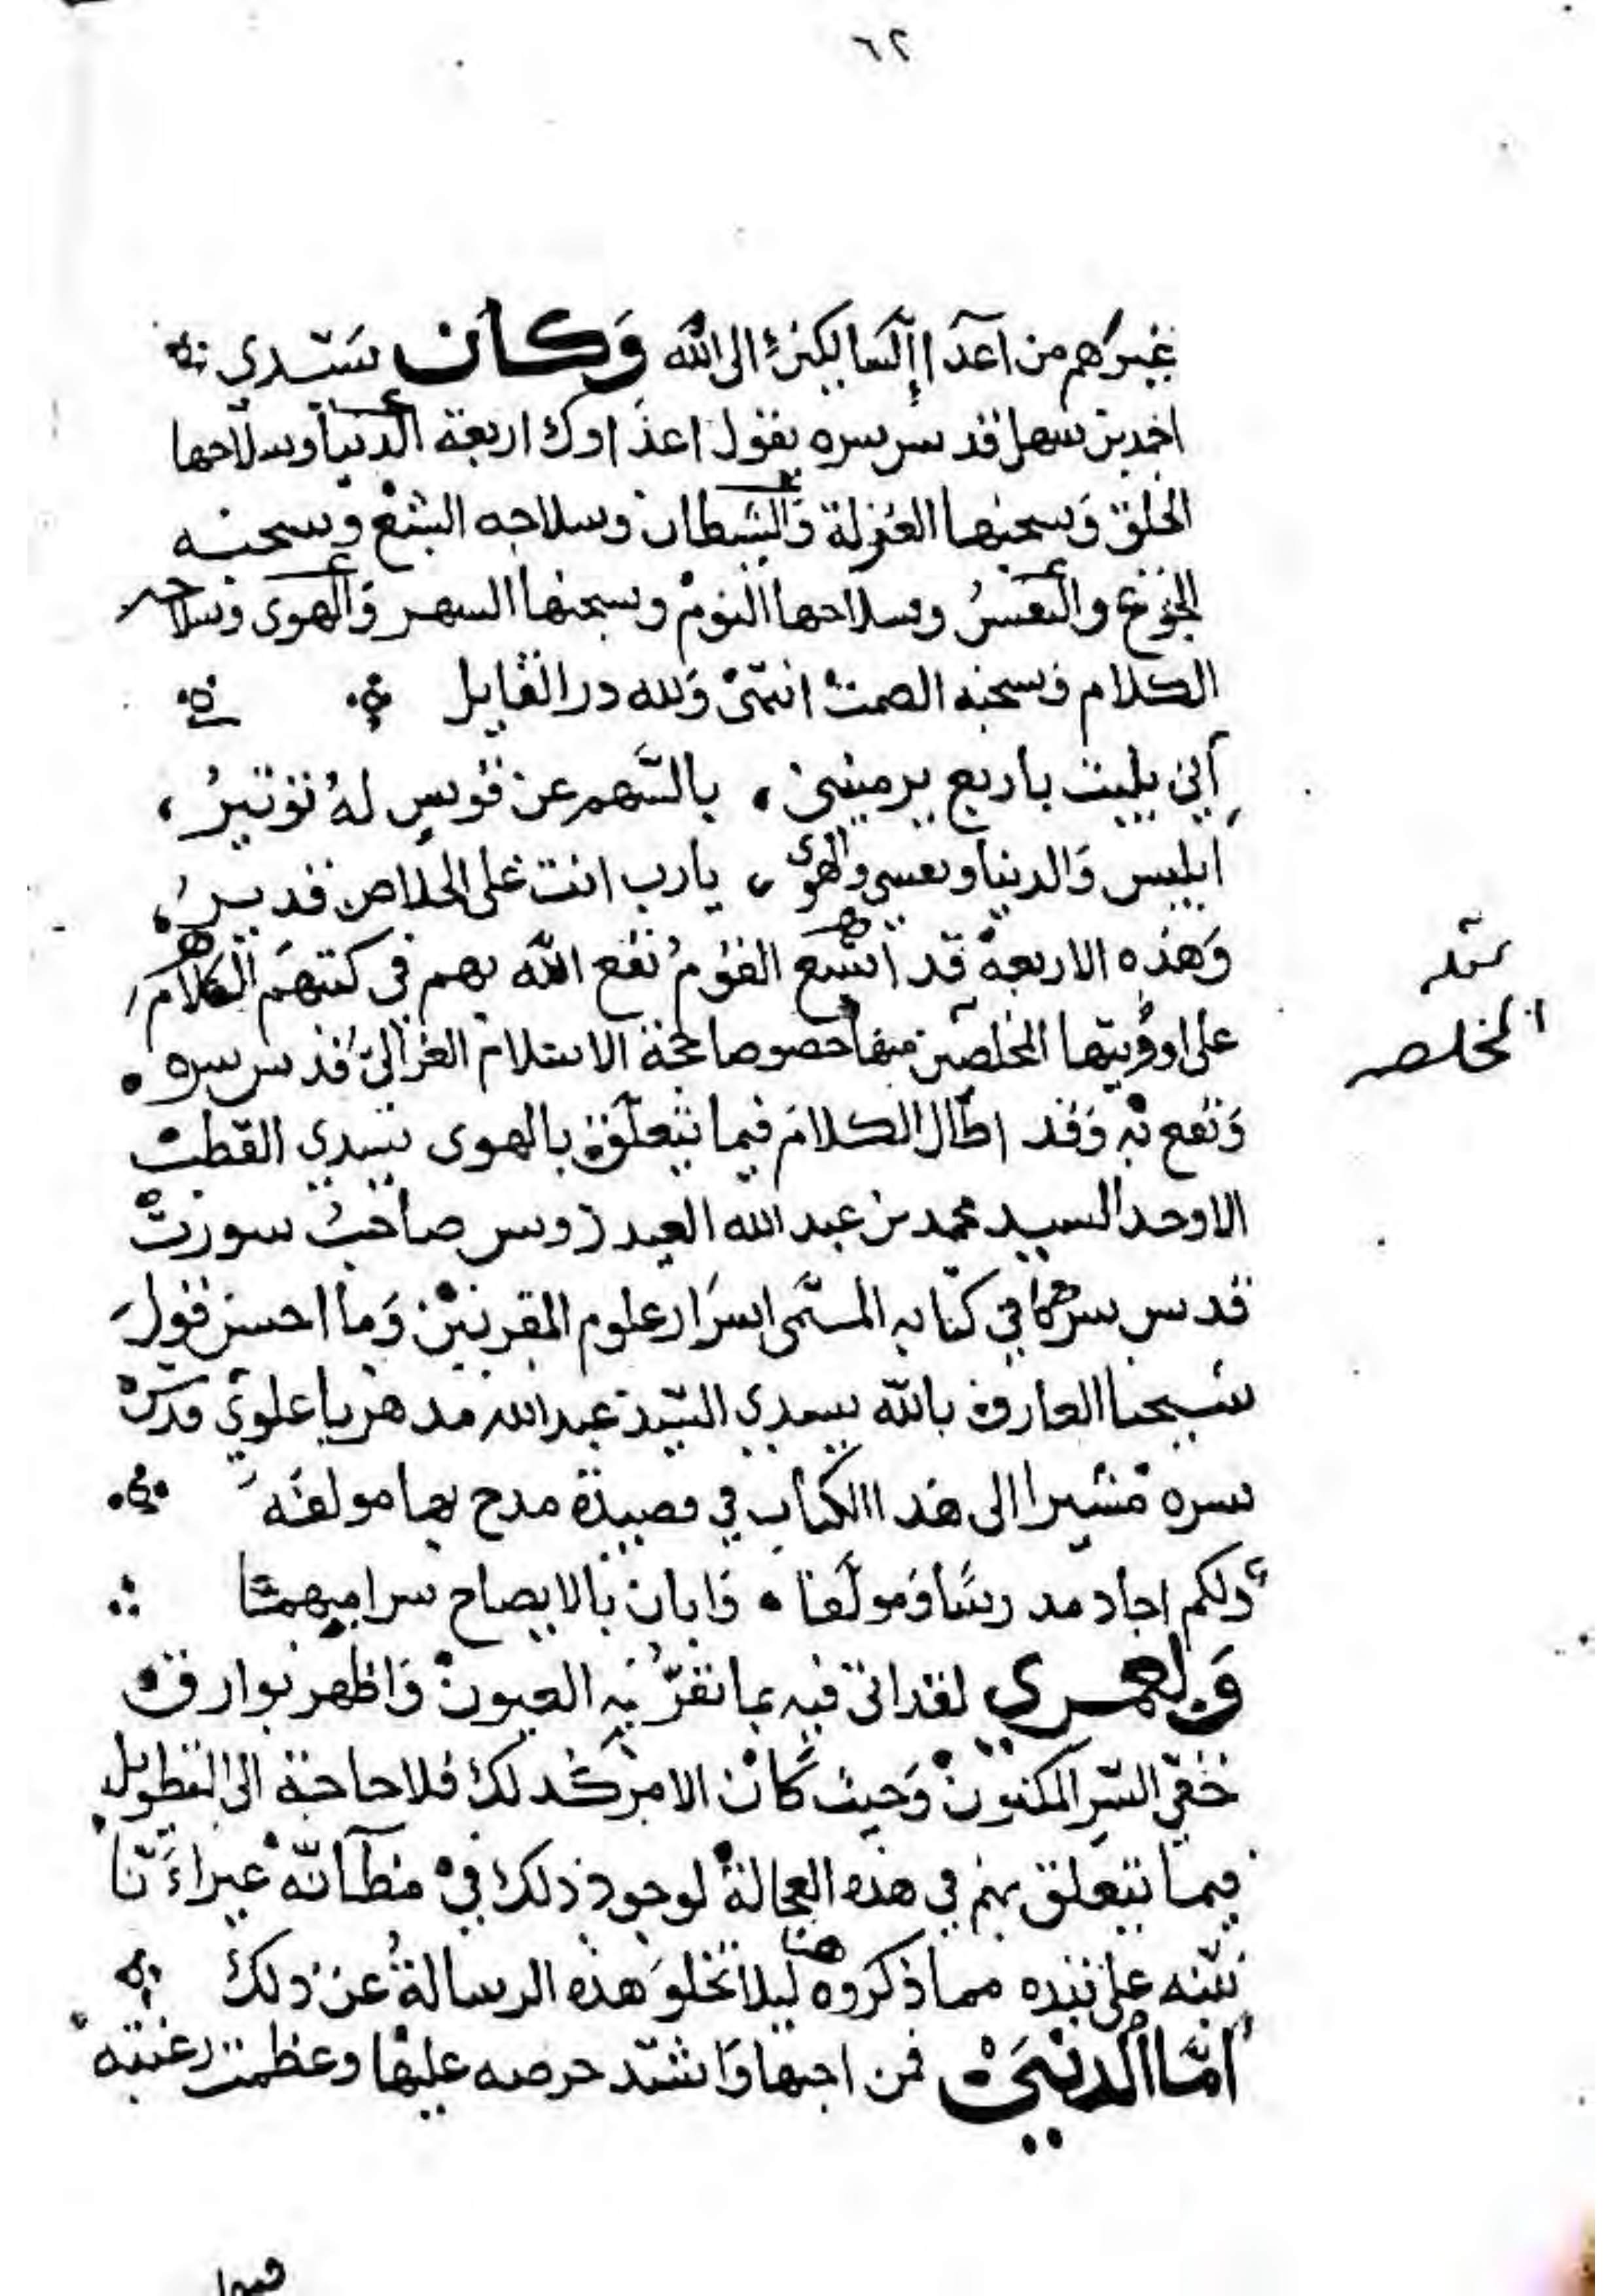 ٦٢
غيرهم من اعدا السالكين الى الله وكان سيدي
احمد بن سهل قدس سره يقول اعداوك اربعة الدنيا وسلاحها
الخلق وسجنها العزلة والشيطان وسلاحه الشبع وسجنه
الجوع والنفس وسلاحها النوم وسجنها السهر والهوى وسلاحه
الكلام وسجنه الصمت انتهى ولله در القايل
اني بليت باربع يرمينني ، بالسهم عن قوس له توتير ،
ابليس والدنيا ونفسي والهوى ، يارب انت على الخلاص قدير ،
وهذه الاربعة قد اشبع القوم نفع الله بهم في كتبهم الكلام
على ادويتها المخلصة منها خصوصا حجة الاسلام الغزالي قدس سره
المخلصه
ونفع به وقد اطال الكلام فيما يتعلق بالهوى سيدي القطب
الاوحد السيد محمد بن عبد الله العيدروس صاحب سورت
قدس سرهما في كتابه المسمى اسرار علوم المقربين وما احسن قول
شيخنا العارف بالله سيدي السيد عبد الله مدهر باعلوي قدس
سره مشيرا الى هذا الكتاب في قصيدة مدح بها مولفه
ولكم اجاد مدرسا ومولفا ، وابان بالايضاح سرا مبهما
ولعمري لقد اتى فيه بما تقر به العيون واظهر بوارق
خفي السر المكنون وحيث كان الامر كذلك فلا حاجة الى التطويل
فيما يتعلق بهم في هذه العجالة لوجود ذلك في مظانه غير اننا
ننبه على نبذه مما ذكروه هنا ليلا تخلو هذه الرسالة عن ذلك
اما الدنيا فمن احبها واشتد حرصه عليها وعظمت رغبته